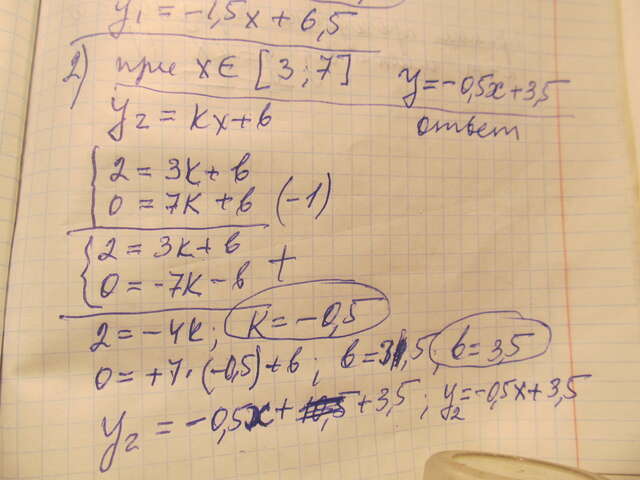 y₁ = -1,5x + 6,5
2) при x ∈ [3 ; 7]
y = -0,5x + 3,5
y₂ = kx + в
ответ
2 = 3k + в
0 = 7k + в (-1)
2 = 3k + в
0 = -7k - в +
2 = -4k ; k = -0,5
0 = +7 · (-0,5) + в ; в = 3,5 ; в = 3,5
y₂ = -0,5x + + 3,5 ; y₂ = -0,5x + 3,5